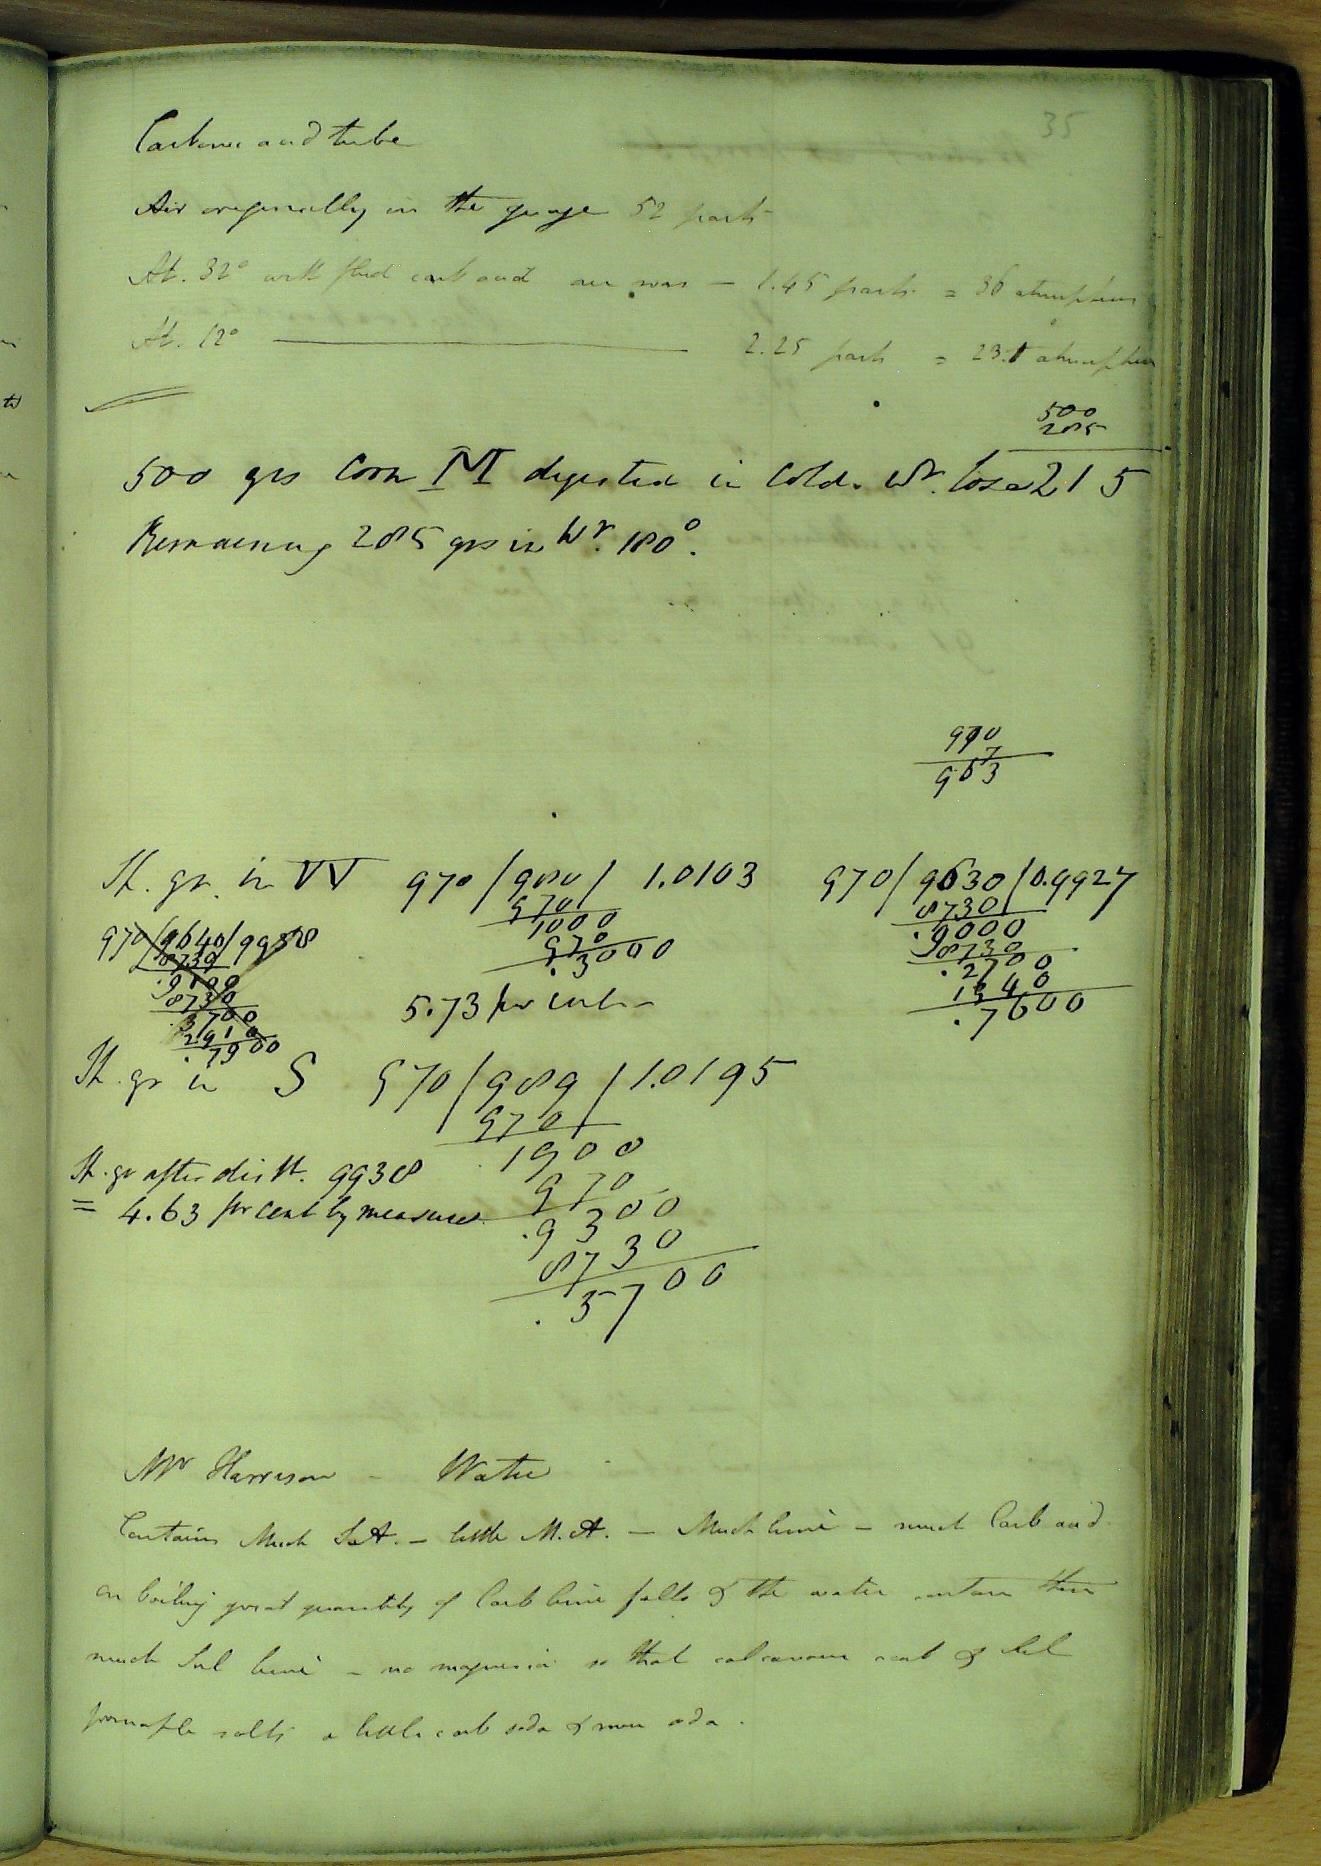 35
Carbonic acid tube
Air originally in the guage 52 parts
At. 32° with fluid carb acid air was — 1.45 parts = 36 atmospheres
At. 12° ——— 2.25 parts = 23.1 atmospheres
500
285
500 grs Corn M digested in Cold. Wr. lose 215
Remaining 285 grs in Wr. 180°.
970
7
963
Sp. gr. in W 970/980/ 1.0103 970/9630/0.9927
970 8730
1000 .9000
970 8730
.3000 .2700
1940
.7600
970/9640/9938
8730
.9100
8730
.3700
2910
.7900
5.73 per cent
Sp. gr in S 970/989/1.0195
970
.1900
970
.9300
8730
.5700
Sp. gr after distt. 9938
= 4.63 per cent by measure
Mr Harrison - Water
Contains Much S.A. — little M. A. — Much lime — much Carb acid
on boiling great quantity of Carb lime falls & the water contains then
much Sul lime — no magnesia so that calcareous carb & Sul
principle salts a little carb soda & mur soda.